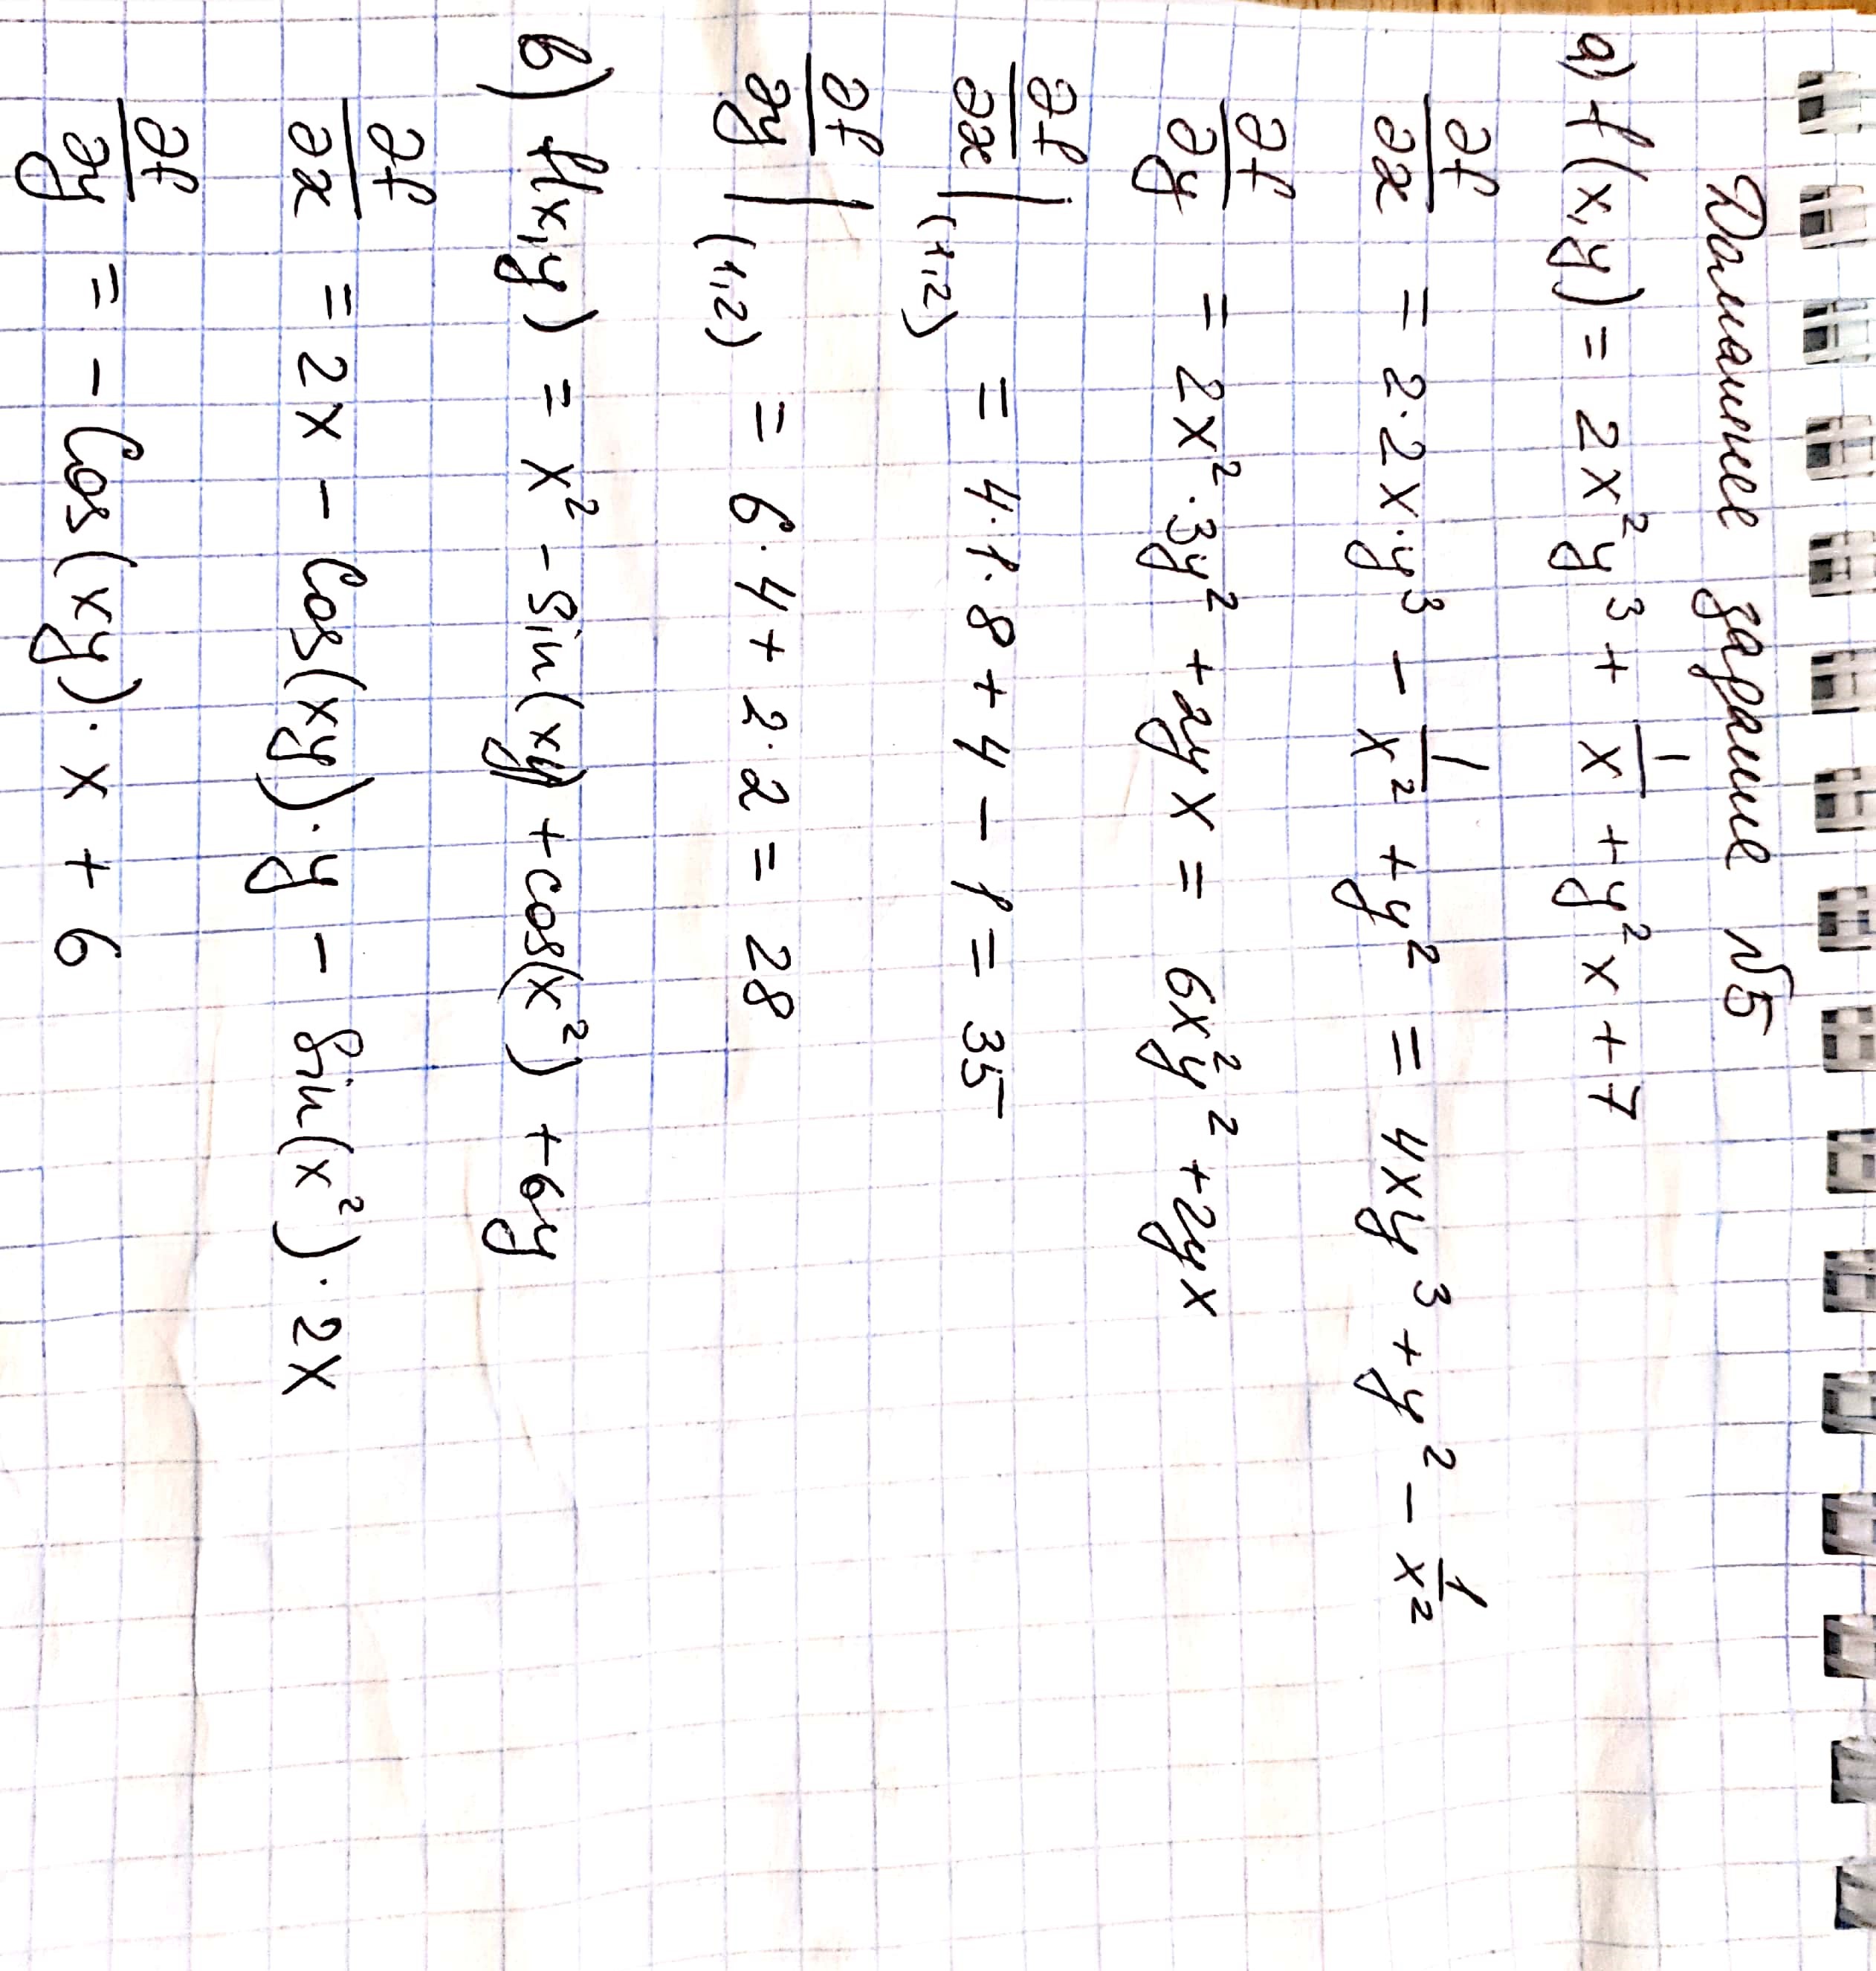 Домашнее задание №5
a) f(x,y) = 2x²y³ + 1/x + y²x + 7
∂f/∂x = 2·2x·y³ − 1/x² + y² = 4xy³ + y² − 1/x²
∂f/∂y = 2x²·3y² + 2yx = 6x²y² + 2yx
∂f/∂x|(1,2) = 4·1·8 + 4 − 1 = 35
∂f/∂y|(1,2) = 6·4 + 2·2 = 28
в) f(x,y) = x² − sin(xy) + cos(x²) + 6y
∂f/∂x = 2x − cos(xy)·y − sin(x²)·2x
∂f/∂y = − cos(xy)·x + 6